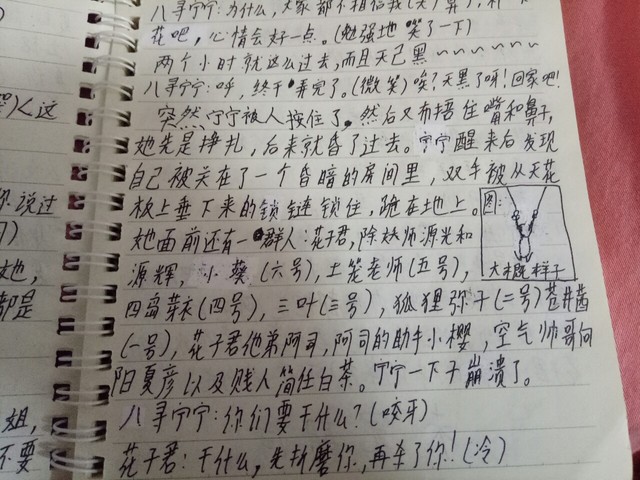 八寻宁宁:为什么,大家都不相信我(哭)算了,种
花吧,心情会好一点。(勉强地笑了一下)
两个小时就这么过去,而且天已黑~~~~~~
八寻宁宁:呼,终于弄完了。(微笑)唉?天黑了呀!回家吧!
突然宁宁被人按住了。然后又布捂住嘴和鼻子,
她先是挣扎,后来就昏了过去。宁宁醒来后发现
自己被关在了一个昏暗的房间里,双手被从天花
板上垂下来的锁链锁住,跪在地上。
图:
大概样子
她面前还有一群人:花子君,除妖师源光和
源辉,小葵(六号),土笼老师(五号),
四岛芽衣(四号),三叶(三号),狐狸弥子(二号)苍井茜
(一号),花子君他弟阿司,阿司的助手小樱,空气帅哥向
阳夏彦以及贱人简任白茶。宁宁一下子崩溃了。
八寻宁宁:你们要干什么?(咬牙)
花子君:干什么,先折磨你,再杀了你!(冷)
这
说过
她,
都是
姐,
不要